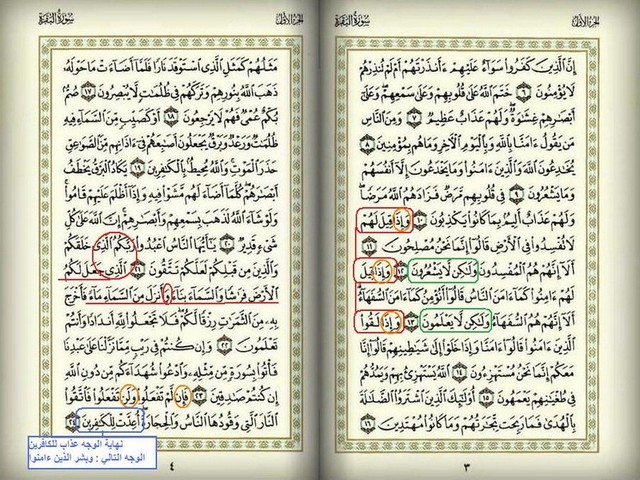 الجزء الأول
سورة البقرة
إن الذين كفروا سواء عليهم ءأنذرتهم أم لم تنذرهم
لا يؤمنون ٦ ختم الله على قلوبهم وعلى سمعهم وعلى
أبصارهم غشاوة ولهم عذاب عظيم ٧ ومن الناس
من يقول ءامنا بالله وباليوم الآخر وما هم بمؤمنين ٨
يخادعون الله والذين ءامنوا وما يخدعون إلا أنفسهم
وما يشعرون ٩ في قلوبهم مرض فزادهم الله مرضا
ولهم عذاب أليم بما كانوا يكذبون ١٠ وإذا قيل لهم
لا تفسدوا في الأرض قالوا إنما نحن مصلحون ١١
ألا إنهم هم المفسدون ولكن لا يشعرون ١٢ وإذا قيل
لهم ءامنوا كما ءامن الناس قالوا أنؤمن كما ءامن السفهاء
ألا إنهم هم السفهاء ولكن لا يعلمون ١٣ وإذا لقوا
الذين ءامنوا قالوا ءامنا وإذا خلوا إلى شياطينهم قالوا إنا
معكم إنما نحن مستهزءون ١٤ الله يستهزئ بهم ويمدهم
في طغيانهم يعمهون ١٥ أولئك الذين اشتروا الضلالة
بالهدى فما ربحت تجارتهم وما كانوا مهتدين ١٦
٣
الجزء الأول
سورة البقرة
مثلهم كمثل الذي استوقد نارا فلما أضاءت ما حوله
ذهب الله بنورهم وتركهم في ظلمات لا يبصرون ١٧ صم
بكم عمي فهم لا يرجعون ١٨ أو كصيب من السماء فيه
ظلمات ورعد وبرق يجعلون أصابعهم في ءاذانهم من الصواعق
حذر الموت والله محيط بالكافرين ١٩ يكاد البرق يخطف
أبصارهم كلما أضاء لهم مشوا فيه وإذا أظلم عليهم قاموا
ولو شاء الله لذهب بسمعهم وأبصارهم إن الله على كل
شيء قدير ٢٠ يا أيها الناس اعبدوا ربكم الذي خلقكم
والذين من قبلكم لعلكم تتقون ٢١ الذي جعل لكم
الأرض فراشا والسماء بناء وأنزل من السماء ماء فأخرج
به من الثمرات رزقا لكم فلا تجعلوا لله أندادا وأنتم
تعلمون ٢٢ وإن كنتم في ريب مما نزلنا على عبدنا
فأتوا بسورة من مثله وادعوا شهداءكم من دون الله
إن كنتم صادقين ٢٣ فإن لم تفعلوا ولن تفعلوا فاتقوا
النار التي وقودها الناس والحجارة أعدت للكافرين ٢٤
نهاية الوجه عذاب للكافرين
الوجه التالي : وبشر الذين ءامنوا
٤